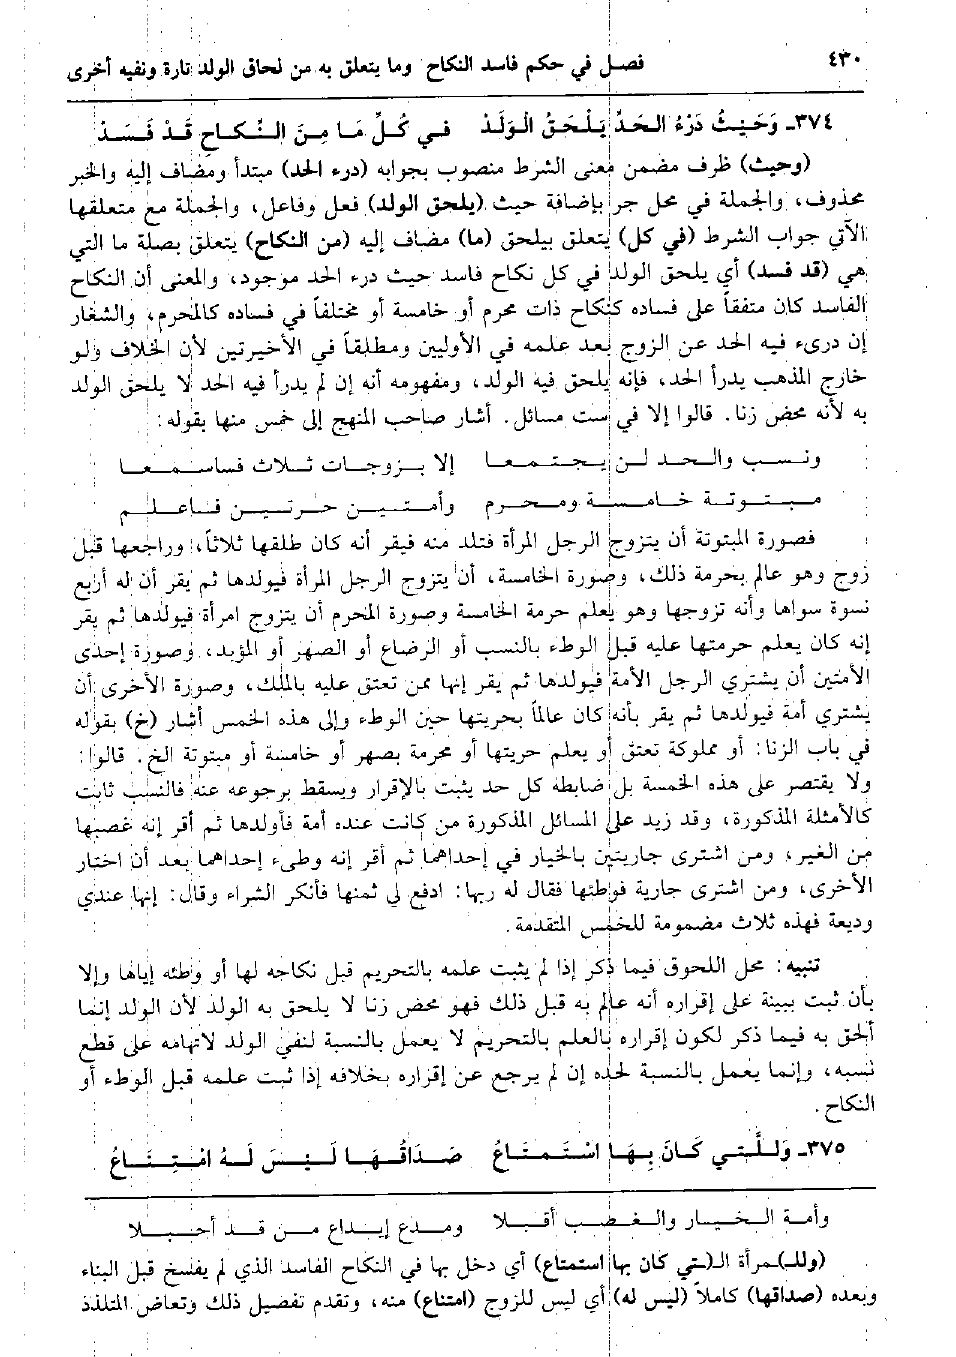 ٤٣٠ فصل في حكم فاسد النكاح وما يتعلق به من لحاق الولد تارة ونفيه أخرى
٣٧٤ـ وَحَيْثُ دَرْءُ الحَدِّ يَلْحَقُ الوَلَدْ فـي كُلِّ مَا مِنَ النِّكَاحِ قَدْ فَسَدْ
(وحيث) ظرف مضمن معنى الشرط منصوب بجوابه (درء الحد) مبتدأ ومضاف إليه والخبر
محذوف، والجملة في محل جر بإضافة حيث (يلحق الولد) فعل وفاعل، والجملة مع متعلقها
الآتي جواب الشرط (في كل) يتعلق بيلحق (ما) مضاف إليه (من النكاح) يتعلق بصلة ما التي
هي (قد فسد) أي يلحق الولد في كل نكاح فاسد حيث درء الحد موجود، والمعنى أن النكاح
الفاسد كان متفقاً على فساده كنكاح ذات محرم أو خامسة أو مختلفاً في فساده كالمحرم، والشغار
إن درىء فيه الحد عن الزوج بعد علمه في الأوليين ومطلقاً في الأخيرتين لأن الخلاف ولو
خارج المذهب يدرأ الحد، فإنه يلحق فيه الولد، ومفهومه أنه إن لم يدرأ فيه الحد لا يلحق الولد
به لأنه محض زنا. قالوا إلا في ست مسائل. أشار صاحب المنهج إلى خمس منها بقوله:
ونسب والحد لن يجتمعا إلا بزوجات ثلاث فاسمعا
مبتوتة خامسة ومحرم وأمتين حرتين فاعلم
فصورة المبتوتة أن يتزوج الرجل المرأة فتلد منه فيقر أنه كان طلقها ثلاثاً، وراجعها قبل
زوج وهو عالم بحرمة ذلك، وصورة الخامسة، أن يتزوج الرجل المرأة فيولدها ثم يقر أن له أربع
نسوة سواها وأنه تزوجها وهو يعلم حرمة الخامسة وصورة المحرم أن يتزوج امرأة فيولدها ثم يقر
إنه كان يعلم حرمتها عليه قبل الوطء بالنسب أو الرضاع أو الصهر أو المؤبد، وصورة إحدى
الأمتين أن يشتري الرجل الأمة فيولدها ثم يقر إنها ممن تعتق عليه بالملك، وصورة الأخرى أن
يشتري أمة فيولدها ثم يقر بأنه كان عالماً بحريتها حين الوطء وإلى هذه الخمس أشار (خ) بقوله
في باب الزنا: أو مملوكة تعتق أو يعلم حريتها أو محرمة بصهر أو خامسة أو مبتوتة الخ. قالوا:
ولا يقتصر على هذه الخمسة بل ضابطه كل حد يثبت بالإقرار ويسقط برجوعه عنه فالنسب ثابت
كالأمثلة المذكورة، وقد زيد على المسائل المذكورة من كانت عنده أمة فأولدها ثم أقر إنه غصبها
من الغير، ومن اشترى جاريتين بالخيار في إحداهما ثم أقر إنه وطىء إحداهما بعد أن اختار
الأخرى، ومن اشترى جارية فوطئها فقال له ربها: ادفع لي ثمنها فأنكر الشراء وقال: إنها عندي
وديعة فهذه ثلاث مضمومة للخمس المتقدمة.
تنبيه: محل اللحوق فيما ذكر إذا لم يثبت علمه بالتحريم قبل نكاحه لها أو وطئه إياها وإلا
بأن ثبت ببينة على إقراره أنه عالم به قبل ذلك فهو محض زنا لا يلحق به الولد لأن الولد إنما
ألحق به فيما ذكر لكون إقراره بالعلم بالتحريم لا يعمل بالنسبة لنفي الولد لاتهامه على قطع
نسبه، وإنما يعمل بالنسبة لحده إن لم يرجع عن إقراره بخلافه إذا ثبت علمه قبل الوطء أو
النكاح.
٣٧٥ـ وَللَّتِي كَانَ بِهَا اسْتِمْتَاعُ صَدَاقُهَا لَيْسَ لَهُ امْتِنَاعُ
وأمة الخيار والغصب أقبلا ومدع إيداع من قد أحبلا
(وللـ)ـمرأة الـ(ـتي كان بها استمتاع) أي دخل بها في النكاح الفاسد الذي لم يفسخ قبل البناء
وبعده (صداقها) كاملاً (ليس له) أي ليس للزوج (امتناع) منه، وتقدم تفصيل ذلك وتعاض المتلذذ